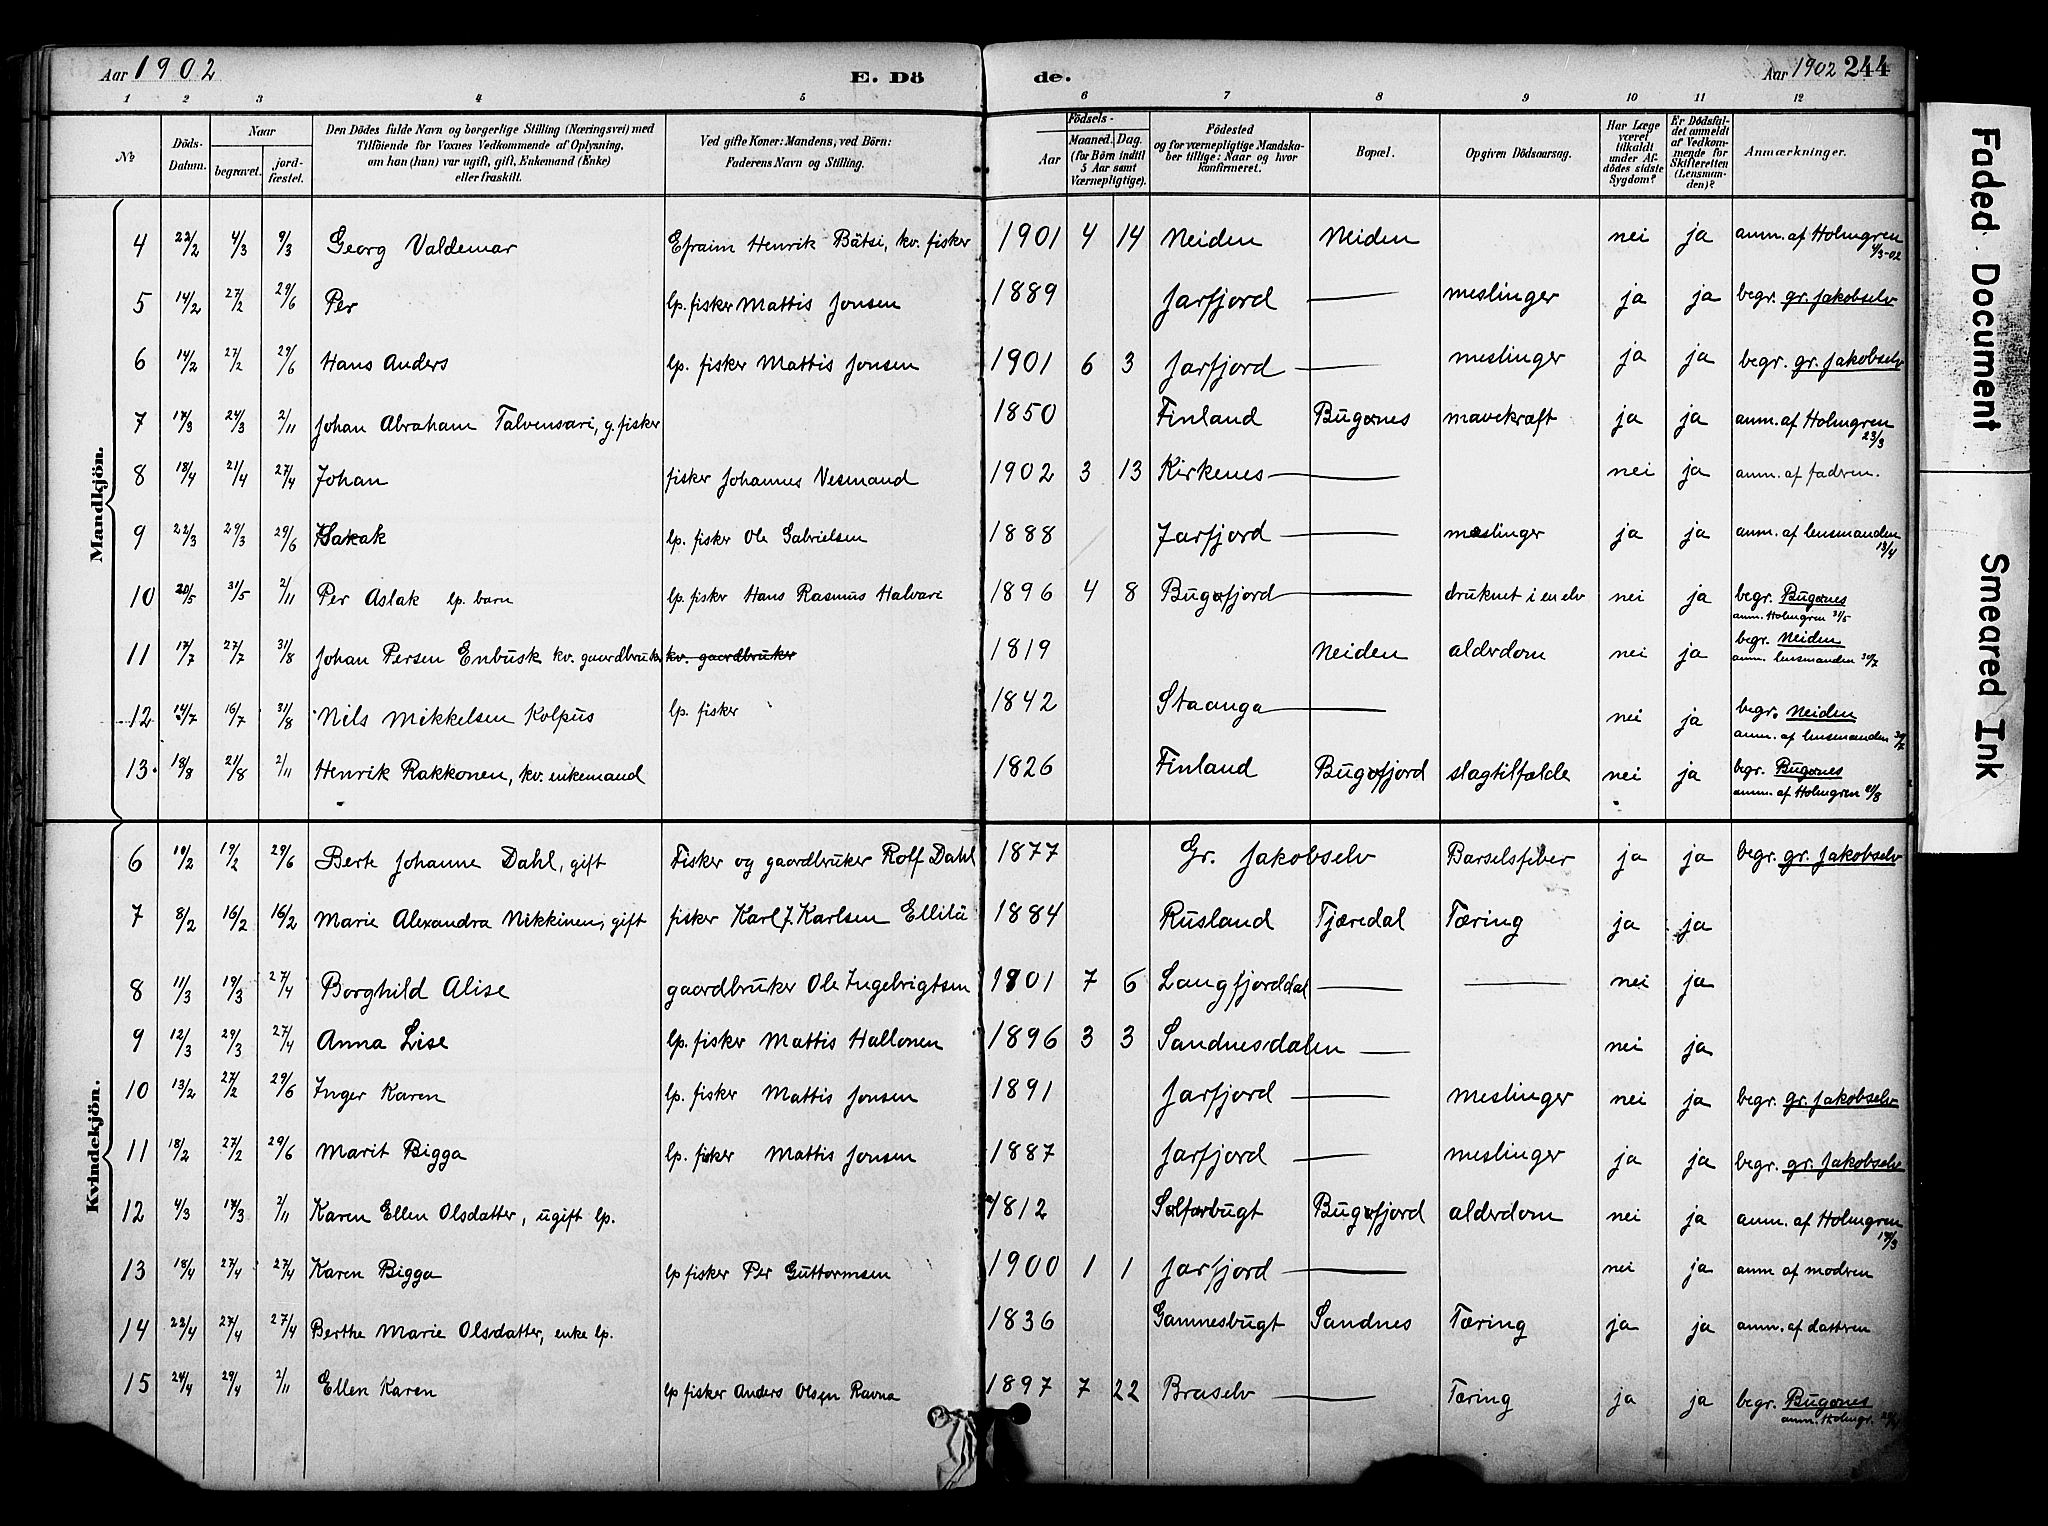 Aar 1902 E. Dö de. Aar 1902 244
1 2 3 4 5 6 7 8 9 10 11 12
No Döds-Datum. Naar begravet. jord-fæstet. Den Dödes fulde Navn og borgerlige Stilling (Næringsvei) med Tilföiende for Voxnes Vedkommende af Oplysning, om han (hun) var ugift, gift, Enkemand (Enke) eller fraskilt. Ved gifte Koner: Mandens, ved Börn: Faderens Navn og Stilling. Födsels- Aar Maaned. Dag. (for Börn indtil 5 Aar samt Værnepligtige). Födested og for værnepligtige Mandskaber tillige: Naar og hvor konfirmeret. Bopæl. Opgiven Dödsaarsag. Har Læge været tilkaldt under Afdödes sidste Sygdom? Er Dödsfaldet anmeldt af Vedkommende for Skifteretten (Lensmanden)? Anmærkninger.
Mandkjön.
4 22/2 4/3 9/3 Georg Valdemar Efraim Henrik Bätsi, kv. fisker 1901 4 14 Neiden Neiden nei ja anm. af Holmgren 4/3-02
5 14/2 27/2 29/6 Per lp. fisker Mattis Jonsen 1889 Jarfjord — meslinger ja ja begr. gr. Jakobselv
6 14/2 27/2 29/6 Hans Anders lp. fisker Mattis Jonsen 1901 6 3 Jarfjord — meslinger ja ja begr. gr. Jakobselv
7 17/3 24/3 2/11 Johan Abraham Talvensari, g. fisker 1850 Finland Bugønes mavekræft ja ja anm. af Holmgren 23/3
8 18/4 21/4 27/4 Johan fisker Johannes Vesmand 1902 3 13 Kirkenes — nei ja anm. af fadren.
9 22/3 29/3 29/6 Isakak lp. fisker Ole Gabrielsen 1888 Jarfjord — meslinger ja ja anm. af lensmanden 13/4
10 20/5 31/5 2/11 Per Aslak lp. barn lp. fisker Hans Rasmus Halvari 1896 4 8 Bugøfjord — druknet i en elv nei ja begr. Bugønes anm. Holmgren 31/5
11 17/7 27/7 31/8 Johan Persen Enbusk kv. gaardbruker kv. gaardbruker 1819 Neiden alderdom nei ja begr. Neiden anm. lensmanden 30/7
12 14/7 16/7 31/8 Nils Mikkelsen Kolpus lp. fisker 1842 Staanga — nei ja begr. Neiden anm. af lensmanden 30/7
13. 18/8 21/8 2/11 Henrik Rakkonen, kv. enkemand 1826 Finland Bugøfjord slagtilfælde nei ja begr. Bugønes anm. af Holmgren 21/8
Kvindekjön.
6 10/2 19/2 29/6 Berte Johanne Dahl, gift Fisker og gaardbruker Rolf Dahl 1877 Gr. Jakobselv Barselsfeber ja ja begr. gr. Jakobselv
7 8/2 16/2 16/2 Marie Alexandra Nikkinen, gift fisker Karl J. Karlsen Ellilä 1884 Rusland Tjæredal Tæring ja ja
8 11/3 19/3 27/4 Borghild Alise gaardbruker Ole Ingebrigtsen 1901 7 6 Langfjorddal — — nei ja
9 12/3 29/3 27/4 Anna Lise lp. fisker Mattis Hallonen 1896 3 3 Sandnesdalen — nei ja
10 13/2 27/2 29/6 Inger Karen lp. fisker Mattis Jonsen 1891 Jarfjord — meslinger nei ja begr. gr. Jakobselv
11 18/2 27/2 29/6 Marit Bigga lp. fisker Mattis Jonsen 1887 Jarfjord — meslinger ja ja begr. gr. Jakobselv
12 4/3 17/3 2/11 Karen Ellen Olsdatter, ugift lp. 1812 Solforbugt Bugøfjord alderdom nei ja anm. af Holmgren 17/3
13 18/4 27/4 27/4 Karen Bigga lp fisker Per Guttormsen 1900 1 1 Jarfjord — nei ja anm af modren
14 22/4 27/4 27/4 Berthe Marie Olsdatter, enke lp. 1836 Gamnesbugt Sandnes Tæring ja ja anm. af datteren
15 24/4 29/4 2/11 Ellen Karen lp fisker Anders Olsen Ravna 1897 7 22 Braselv — Tæring ja ja begr. Bugønes anm. Holmgr.
Faded Document
Smeared Ink